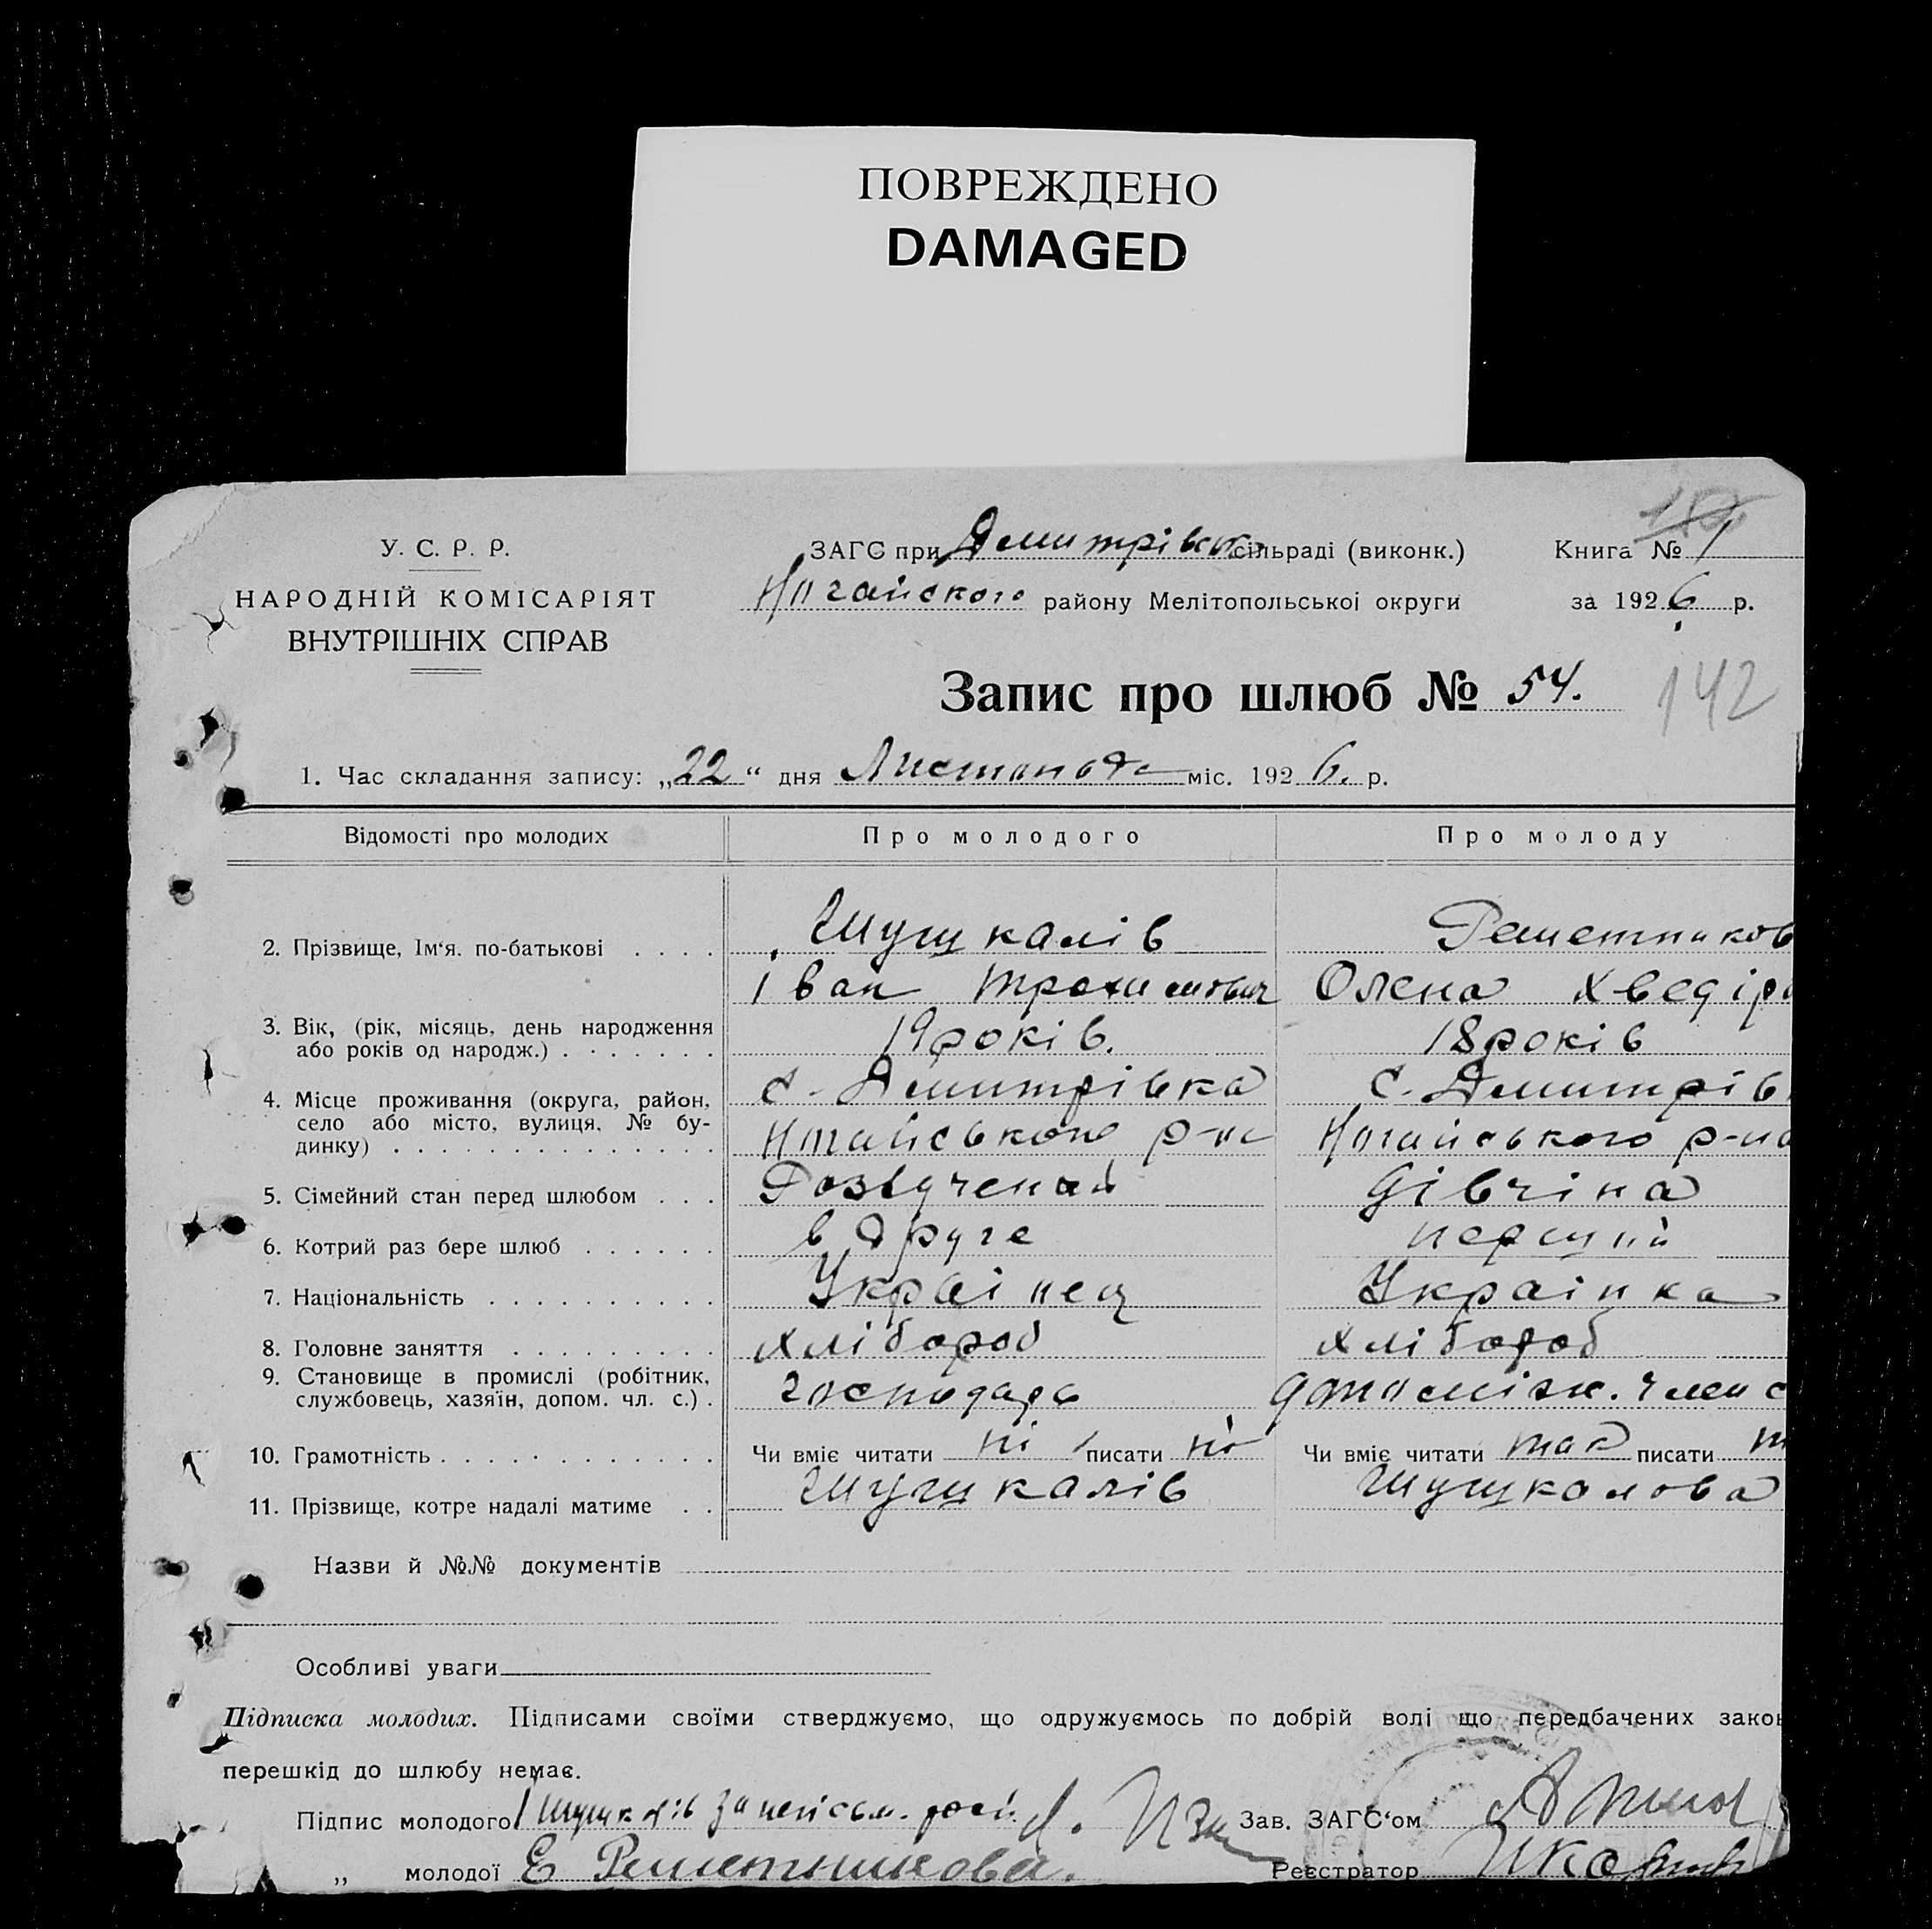 ПОВРЕЖДЕНО
DAMAGED
У. С. Р. Р.
НАРОДНІЙ КОМІСАРІЯТ
ВНУТРІШНІХ СПРАВ
ЗАГС при Дмитрівськ сільраді (виконк.)
Ногайского району Мелітопольськоі округи
Книга № 1
за 1926 р.
Запис про шлюб № 54.
142
1. Час складання запису: „22“ дня Листопада міс. 1926. р.
Відомості про молодих Про молодого Про молоду
2. Прізвище, Ім‘я. по-батькові . . . . Шушкалів Решетников
Іван Трохимович Олена Хведір
3. Вік, (рік, місяць, день народження
або років од народж.) . . . . . . . 19 років. 18 років
4. Місце проживання (округа, район, с. Дмитрівка с. Дмитрів
село або місто, вулиця, № бу-
динку) . . . . . . . . . . . . . . Ногайського р-на Ногайського р-на
5. Сімейний стан перед шлюбом . . . Розвученай дівчіна
6. Котрий раз бере шлюб . . . . . . в друге перший
7. Національність . . . . . . . . . . Украінец Украінка
8. Головне заняття . . . . . . . . . хлібороб хлібороб
9. Становище в промислі (робітник,
службовець, хазяїн, допом. чл. с.) . господарь допоміж. член с
10. Грамотність . . . . . . . . . . . . Чи вміє читати ні писати ні Чи вміє читати так писати т
11. Прізвище, котре надалі матиме . . Шушкалів Шушкалова
Назви й №№ документів
Особливі уваги
Підписка молодих. Підписами своїми стверджуємо, що одружуємось по добрій волі що передбачених закон
перешкід до шлюбу немає.
Підпис молодого Шушкалів за неписьм.
Зав. ЗАГС‘ом
„ молодої Е Решетникова.
Реєстратор